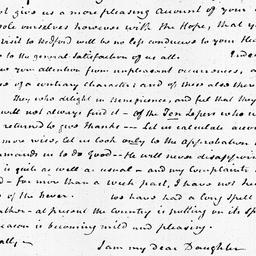 not give us a more pleasing account of your
sole ourselves however with the Hope, that yo
visit to Medford will be no less conducive to your He
to the general satisfaction of us all. Indee
your attention from unpleasant occurrences, a
of a contrary character; and of these also there
they who delight in beneficence, and feel that they
will not always find it — Of the Ten Lepers who w
returned to give thanks — Let us calculate accor
more wise, let us look only to the approbation
commands us to do good — He will never disappoin
is quite as well as usual — and my complaints
d — for more than a week past, I have not he
of the Fever. We have had a long spell
ather — at present the Country is putting on its Sp
eason is becoming mild and pleasing.
ally,
I am my dear Daughter